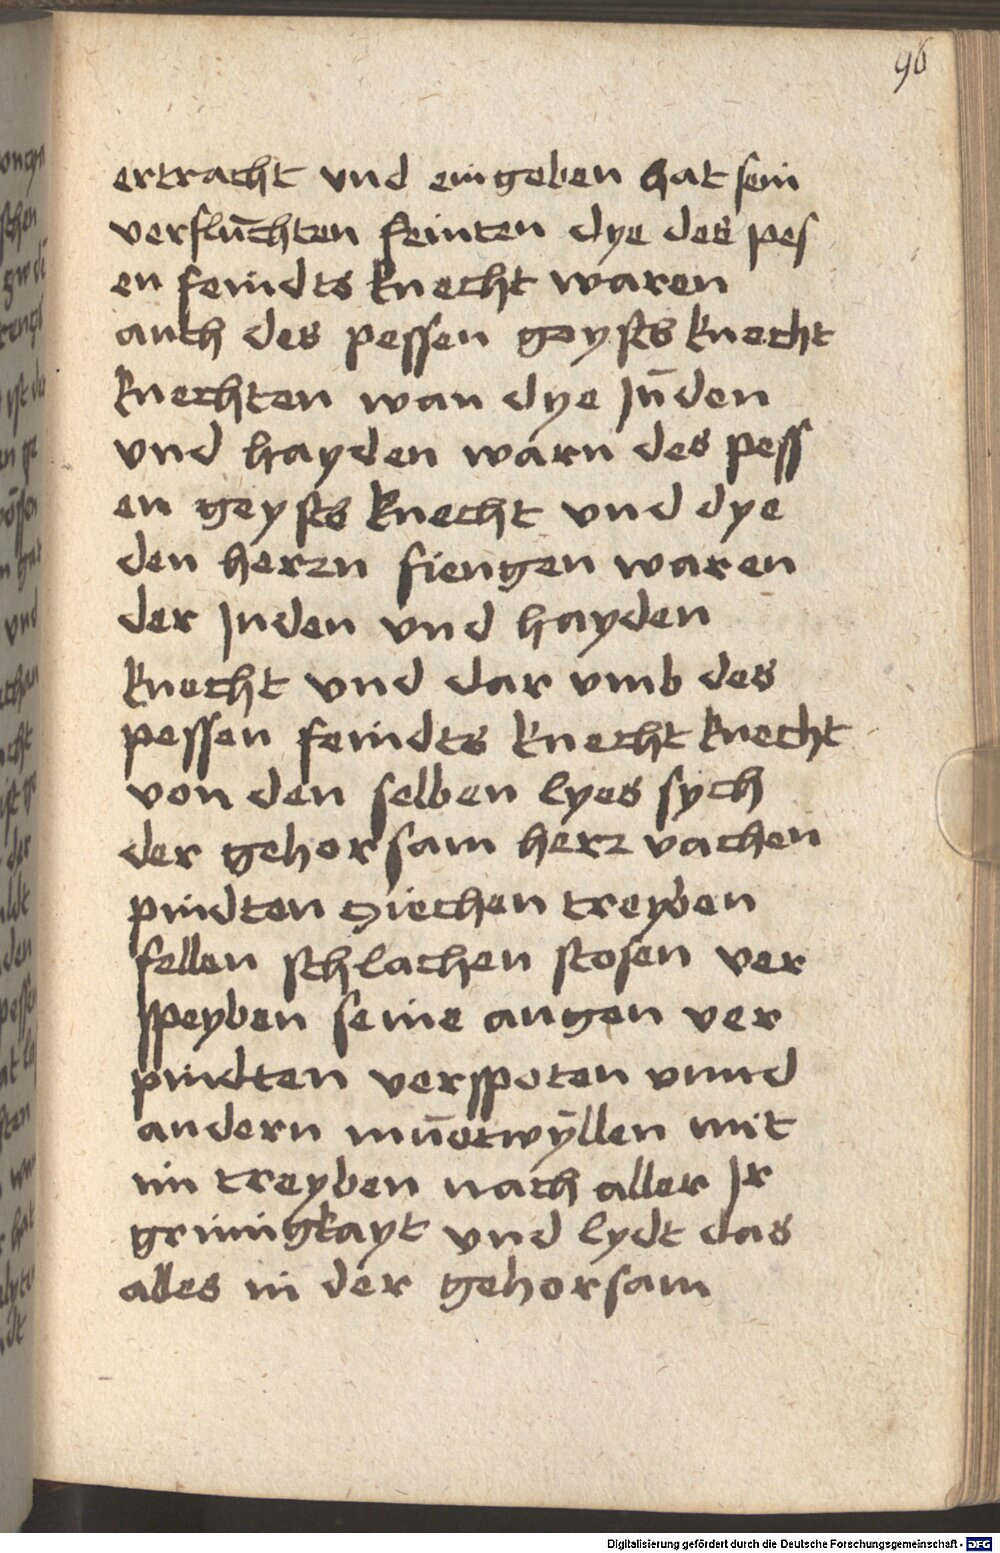 96
ertracht vnd eingeben hat sein
verflūchten feinten dye des pes
en feindts knecht waren
auch des pessen geysts knecht
knechten wan dye Jūden
vnd hayden warn des pess
en geysts knecht vnd dye
den herzn fiengen waren
der Juden vnd hayden
knecht vnd dar vmb des
pessen feindts knecht knecht
von den selben lyes sych
der gehorsam herz vachen
pindten ziechen treyben
fellen schlachen stosen ver
speyben seine augen ver
pindten verspoten vnnd
andern mūotwyllen mit
im treyben nach aller Jr
grimigkayt vnd lydt das
alles in der gehorsam
Digitalisierung gefördert durch die Deutsche Forschungsgemeinschaft - DFG